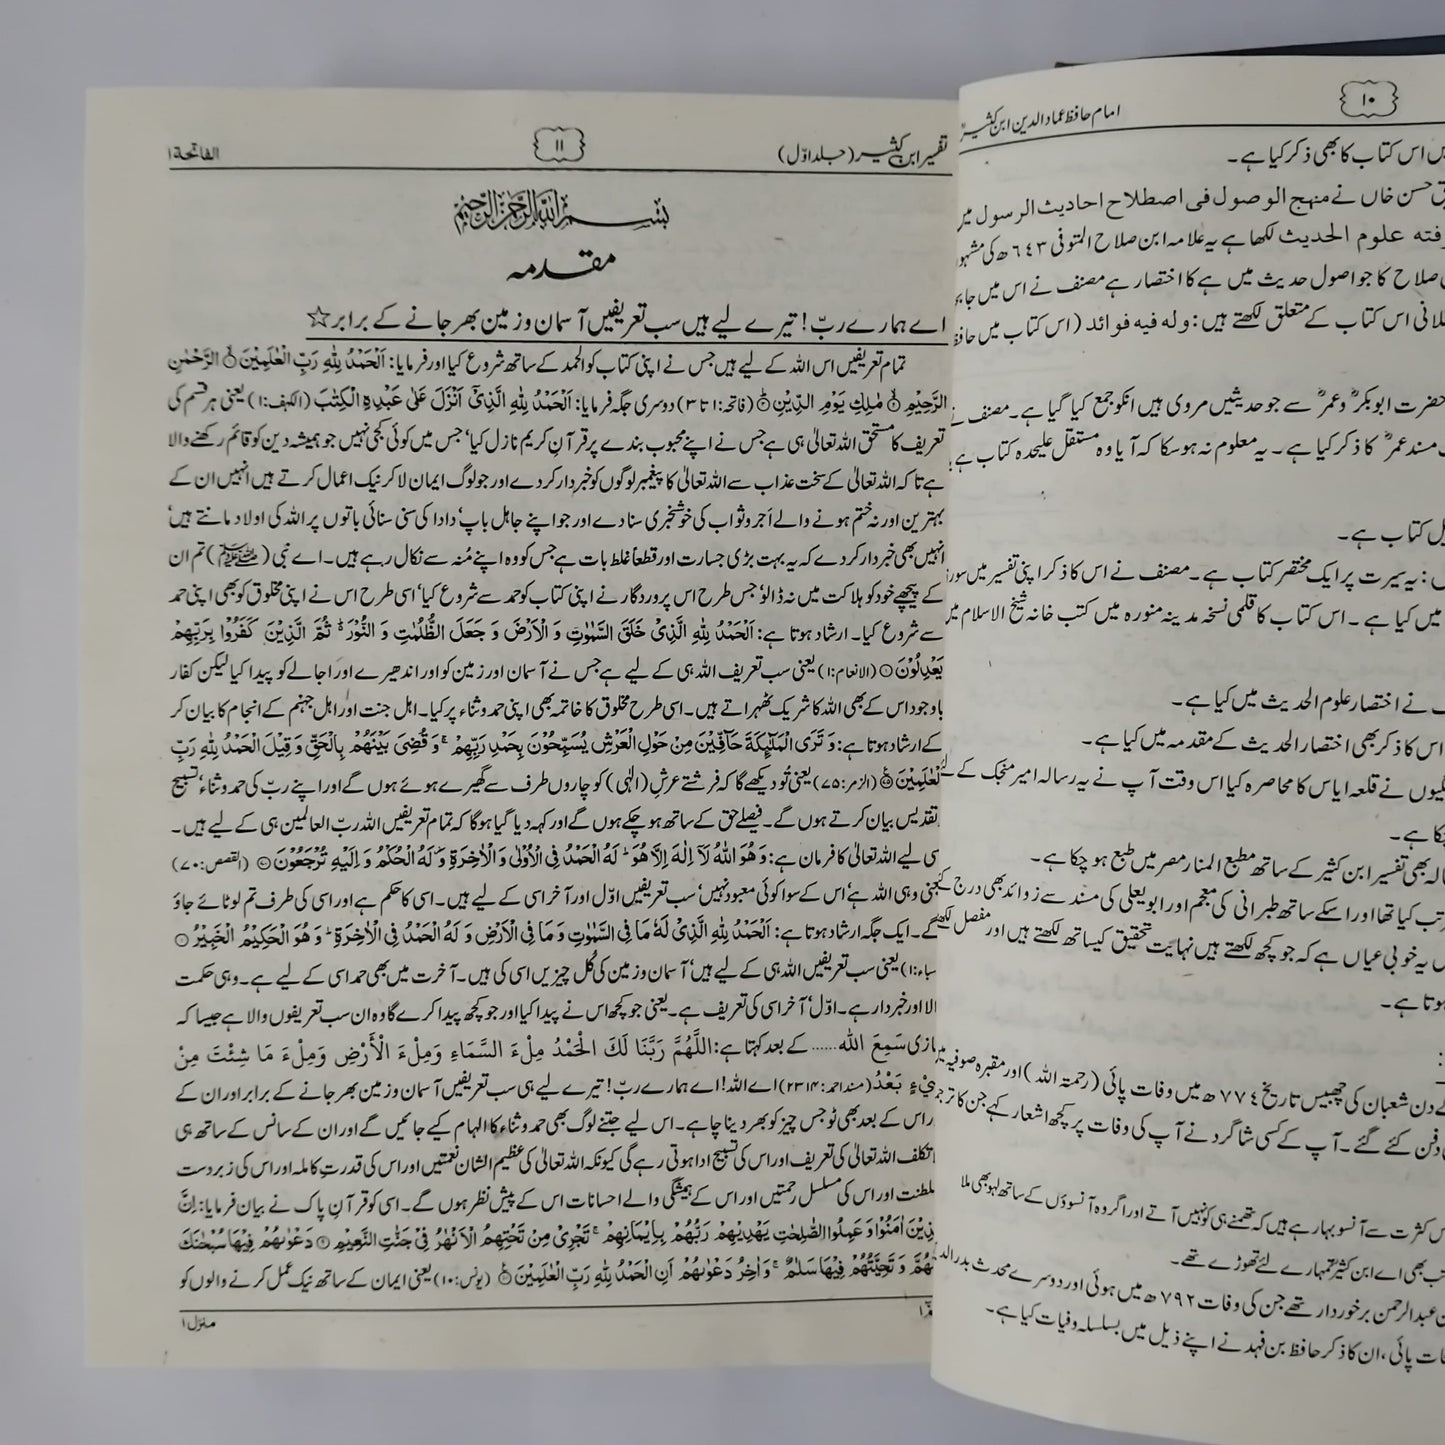 امام حافظ عماد الدین ابن کثیرؒ
۱۰
اس کتاب کا بھی ذکر کیا ہے۔
حسن خاں نے منہج الوصول فی اصطلاح احادیث الرسول میں
علوم الحدیث لکھا ہے یہ علامہ ابن صلاح المتوفی ٦٤٣ھ کی مشہور
صلاح کا جو اصول حدیث میں ہے کا اختصار ہے مصنف نے اس میں جا بجا
اس کتاب کے متعلق لکھتے ہیں: وله فیه فوائد (اس کتاب میں حافظ
حضرت ابوبکرؓ و عمرؓ سے جو حدیثیں مروی ہیں انکو جمع کیا گیا ہے۔ مصنف نے
مسند عمرؓ کا ذکر کیا ہے۔ یہ معلوم نہ ہو سکا کہ آیا وہ مستقل علیحدہ کتاب ہے
کتاب ہے۔
یہ سیرت پر ایک مختصر کتاب ہے۔ مصنف نے اس کا ذکر اپنی تفسیر میں سورۃ
میں کیا ہے۔ اس کتاب کا قلمی نسخہ مدینہ منورہ میں کتب خانہ شیخ الاسلام میں
نے اختصار علوم الحدیث میں کیا ہے۔
اس کا ذکر بھی اختصار الحدیث کے مقدمہ میں کیا ہے۔
نے قلعہ ایاس کا محاصرہ کیا اس وقت آپ نے یہ رسالہ امیر منجک کے لئے
چکا ہے۔
بھی تفسیر ابن کثیر کے ساتھ مطبع المنار مصر میں طبع ہو چکا ہے۔
کیا تھا اور اسکے ساتھ طبرانی کی معجم اور ابو یعلی کی مسند سے زوائد بھی درج کئے
یہ خوبی عیاں ہے کہ جو کچھ لکھتے ہیں نہایت تحقیق کیساتھ لکھتے ہیں اور مفصل لکھتے
ہوتا ہے۔
دن شعبان کی چھبیس تاریخ ٧٧٤ھ میں وفات پائی (رحمتہ اللہ) اور مقبرہ صوفیہ میں
دفن کئے گئے۔ آپ کے کسی شاگرد نے آپ کی وفات پر کچھ اشعار کہے جن کا ترجمہ
کثرت سے آنسو بہا رہے ہیں کہ تھمنے ہی کو نہیں آتے اور اگر وہ آنسوؤں کے ساتھ لہو بھی ملا
تب بھی اے ابن کثیر تمہارے لئے تھوڑے تھے۔
عبدالرحمن برخوردار تھے جن کی وفات ٧٩٢ھ میں ہوئی اور دوسرے محدث بدر الدین
پائی، ان کا ذکر حافظ بن فہد نے اپنے ذیل میں بسلسلہ وفیات کیا ہے۔
تفسیر ابن کثیر (جلد اوّل)
۱۱
الفاتحۃ ۱
بسم اللہ الرحمن الرحیم
مقدمہ
اے ہمارے ربّ! تیرے لیے ہیں سب تعریفیں آسمان و زمین بھر جانے کے برابر☆
تمام تعریفیں اس اللہ کے لیے ہیں جس نے اپنی کتاب کو الحمد کے ساتھ شروع کیا اور فرمایا: اَلْحَمْدُ لِلّٰهِ رَبِّ الْعٰلَمِیْنَ۝ الرَّحْمٰنِ
الرَّحِیْمِ۝ مٰلِكِ یَوْمِ الدِّیْنِ۝ (فاتحہ: ۱ تا ۳) دوسری جگہ فرمایا: اَلْحَمْدُ لِلّٰهِ الَّذِیْۤ اَنْزَلَ عَلٰی عَبْدِهِ الْكِتٰبَ (الکہف: ۱) یعنی ہر قسم کی
تعریف کا مستحق اللہ تعالیٰ ہی ہے جس نے اپنے محبوب بندے پر قرآن کریم نازل کیا، جس میں کوئی کجی نہیں جو ہمیشہ دین کو قائم رکھنے والا
ہے تاکہ اللہ تعالیٰ کے سخت عذاب سے اللہ تعالیٰ کا پیغمبر لوگوں کو خبردار کر دے اور جو لوگ ایمان لا کر نیک اعمال کرتے ہیں انہیں ان کے
بہترین اور نہ ختم ہونے والے اجر و ثواب کی خوشخبری سنا دے اور جو اپنے جاہل باپ، دادا کی سنی سنائی باتوں پر اللہ کی اولاد مانتے ہیں،
انہیں بھی خبردار کر دے کہ یہ بہت بڑی جسارت اور قطعاً غلط بات ہے جس کو وہ اپنے مُنہ سے نکال رہے ہیں۔ اے نبی (ﷺ) تم ان
کے پیچھے خود کو ہلاکت میں نہ ڈالو، جس طرح اس پروردگار نے اپنی کتاب کو حمد سے شروع کیا، اسی طرح اس نے اپنی مخلوق کو بھی اپنی حمد
سے شروع کیا۔ ارشاد ہوتا ہے: اَلْحَمْدُ لِلّٰهِ الَّذِیْ خَلَقَ السَّمٰوٰتِ وَ الْاَرْضَ وَ جَعَلَ الظُّلُمٰتِ وَ النُّوْرَ ؕ ثُمَّ الَّذِیْنَ كَفَرُوْا بِرَبِّهِمْ
یَعْدِلُوْنَ۝ (الانعام: ۱) یعنی سب تعریف اللہ ہی کے لیے ہے جس نے آسمان اور زمین کو اور اندھیرے اور اجالے کو پیدا کیا لیکن کفار
باوجود اس کے بھی اللہ کا شریک ٹھہراتے ہیں۔ اسی طرح مخلوق کا خاتمہ بھی اپنی حمد و ثناء پر کیا۔ اہل جنت اور اہل جہنم کے انجام کا بیان کر
کے ارشاد ہوتا ہے: وَ تَرَی الْمَلٰٓىِٕكَةَ حَآفِّیْنَ مِنْ حَوْلِ الْعَرْشِ یُسَبِّحُوْنَ بِحَمْدِ رَبِّهِمْ ۚ وَ قُضِیَ بَیْنَهُمْ بِالْحَقِّ وَ قِیْلَ الْحَمْدُ لِلّٰهِ رَبِّ
الْعٰلَمِیْنَ۝ (الزمر: ۷۵) یعنی تُو دیکھے گا کہ فرشتے عرشِ (الٰہی) کو چاروں طرف سے گھیرے ہوئے ہوں گے اور اپنے ربّ کی حمد و ثناء، تسبیح
تقدیس بیان کرتے ہوں گے۔ فیصلے حق کے ساتھ ہو چکے ہوں گے اور کہہ دیا گیا ہوگا کہ تمام تعریفیں اللہ ربّ العالمین ہی کے لیے ہیں۔
سی لیے اللہ تعالیٰ کا فرمان ہے: وَ هُوَ اللّٰهُ لَاۤ اِلٰهَ اِلَّا هُوَ ؕ لَهُ الْحَمْدُ فِی الْاُوْلٰی وَ الْاٰخِرَةِ ؗ وَ لَهُ الْحُكْمُ وَ اِلَیْهِ تُرْجَعُوْنَ۝ (القصص: ۷۰)
وہی اللہ ہے، اس کے سوا کوئی معبود نہیں، سب تعریفیں اوّل اور آخر اسی کے لیے ہیں۔ اسی کا حکم ہے اور اسی کی طرف تم لوٹائے جاؤ
گے۔ ایک جگہ ارشاد ہوتا ہے: اَلْحَمْدُ لِلّٰهِ الَّذِیْ لَهٗ مَا فِی السَّمٰوٰتِ وَ مَا فِی الْاَرْضِ وَ لَهُ الْحَمْدُ فِی الْاٰخِرَةِ ؕ وَ هُوَ الْحَكِیْمُ الْخَبِیْرُ۝
سباء: ۱) یعنی سب تعریفیں اللہ ہی کے لیے ہیں، آسمان و زمین کی کُل چیزیں اسی کی ہیں۔ آخرت میں بھی حمد اسی کے لیے ہے۔ وہی حکمت
الا اور خبردار ہے۔ اوّل، آخر اسی کی تعریف ہے۔ یعنی جو کچھ اس نے پیدا کیا اور جو کچھ پیدا کرے گا وہ ان سب تعریفوں والا ہے جیسا کہ
سَمِعَ اللّٰه ...... کے بعد کہتا ہے: اللَّهُمَّ رَبَّنَا لَكَ الْحَمْدُ مِلْءَ السَّمَاءِ وَمِلْءَ الْأَرْضِ وَمِلْءَ مَا شِئْتَ مِنْ
بَعْدُ (مسند احمد: ۲۳۱۴) اے اللہ! اے ہمارے ربّ! تیرے لیے ہی سب تعریفیں آسمان و زمین بھر جانے کے برابر اور ان کے
اس کے بعد بھی تو جس چیز کو بھر دینا چاہے۔ اس لیے جتنے لوگ بھی حمد و ثناء کا الہام کیے جائیں گے اور ان کے سانس کے ساتھ ہی
تکلف اللہ تعالیٰ کی تعریف اور اس کی تسبیح ادا ہوتی رہے گی کیونکہ اللہ تعالیٰ کی عظیم الشان نعمتیں اور اس کی قدرتِ کاملہ اور اس کی زبردست
سلطنت اور اس کی مسلسل رحمتیں اور اس کے ہمیشگی والے احسانات اس کے پیش نظر ہوں گے۔ اسی کو قرآنِ پاک نے بیان فرمایا: اِنَّ
الَّذِیْنَ اٰمَنُوْا وَ عَمِلُوا الصّٰلِحٰتِ یَهْدِیْهِمْ رَبُّهُمْ بِاِیْمَانِهِمْ ۚ تَجْرِیْ مِنْ تَحْتِهِمُ الْاَنْهٰرُ فِیْ جَنّٰتِ النَّعِیْمِ۝ دَعْوٰىهُمْ فِیْهَا سُبْحٰنَكَ
وَ تَحِیَّتُهُمْ فِیْهَا سَلٰمٌ ۚ وَ اٰخِرُ دَعْوٰىهُمْ اَنِ الْحَمْدُ لِلّٰهِ رَبِّ الْعٰلَمِیْنَ۝ (یونس: ۱۰) یعنی ایمان کے ساتھ نیک عمل کرنے والوں کو
منزل ۱